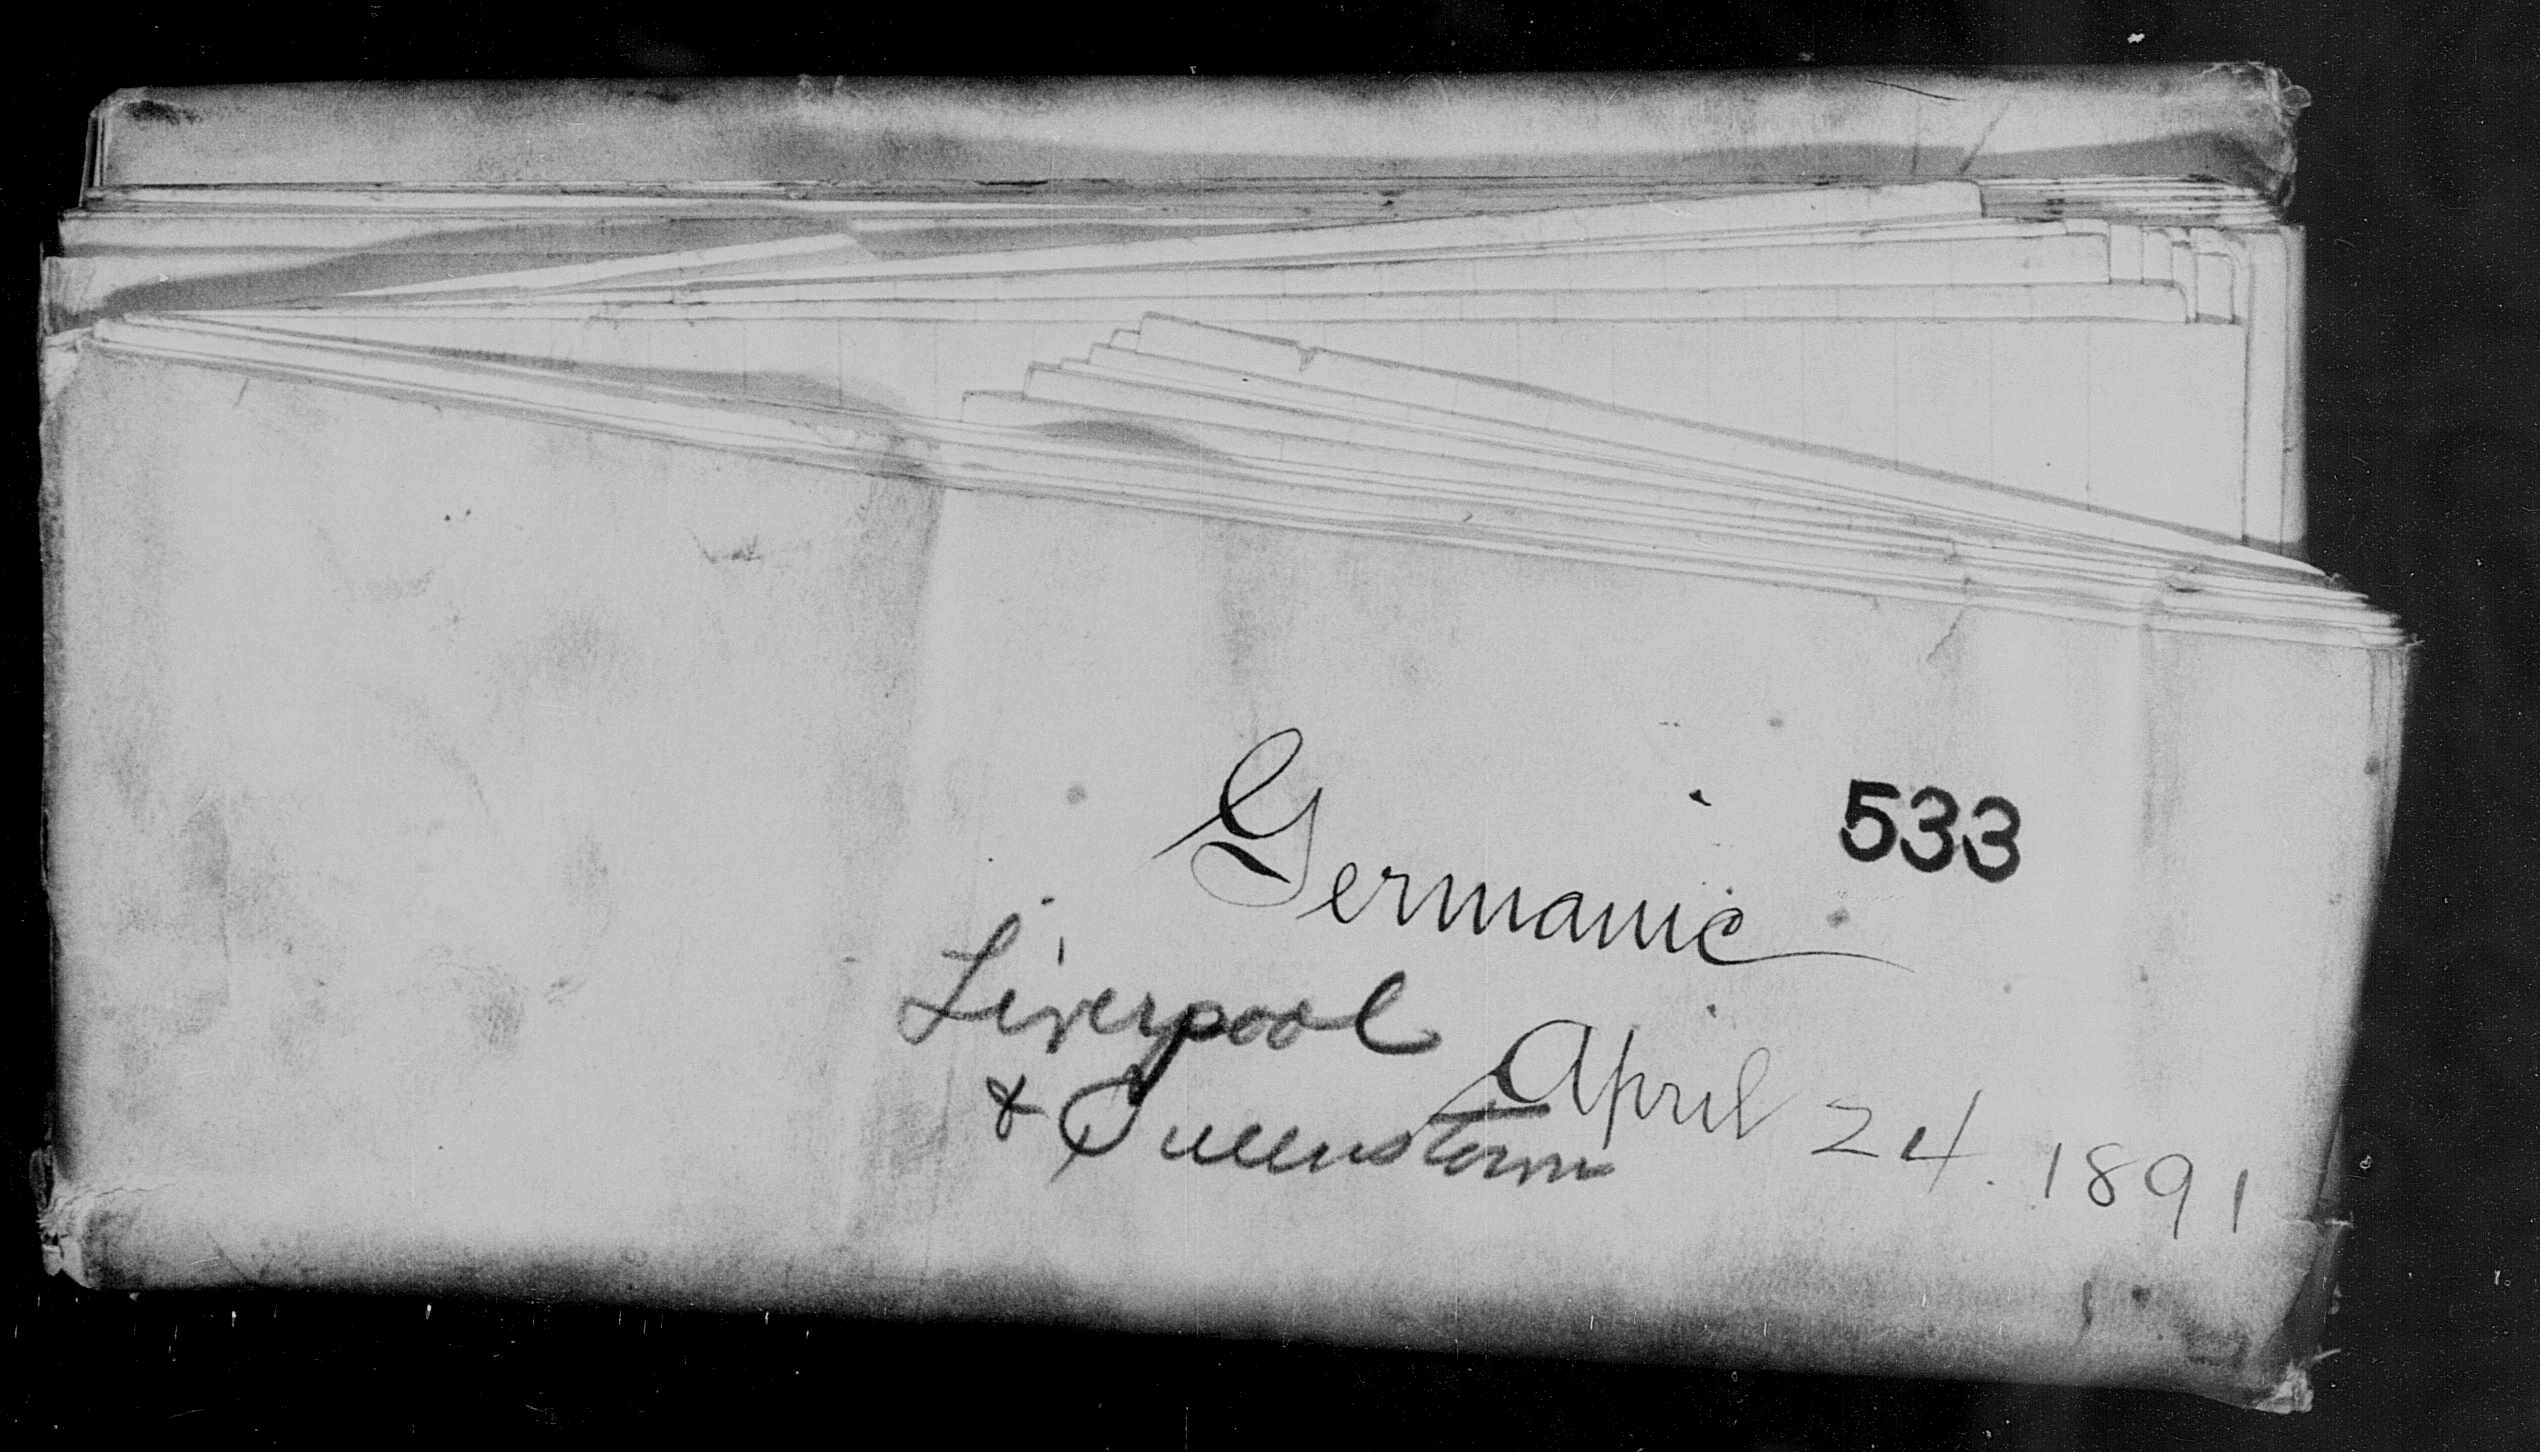 533
Germanic
Liverpool
& Queenstown
April 24. 1891